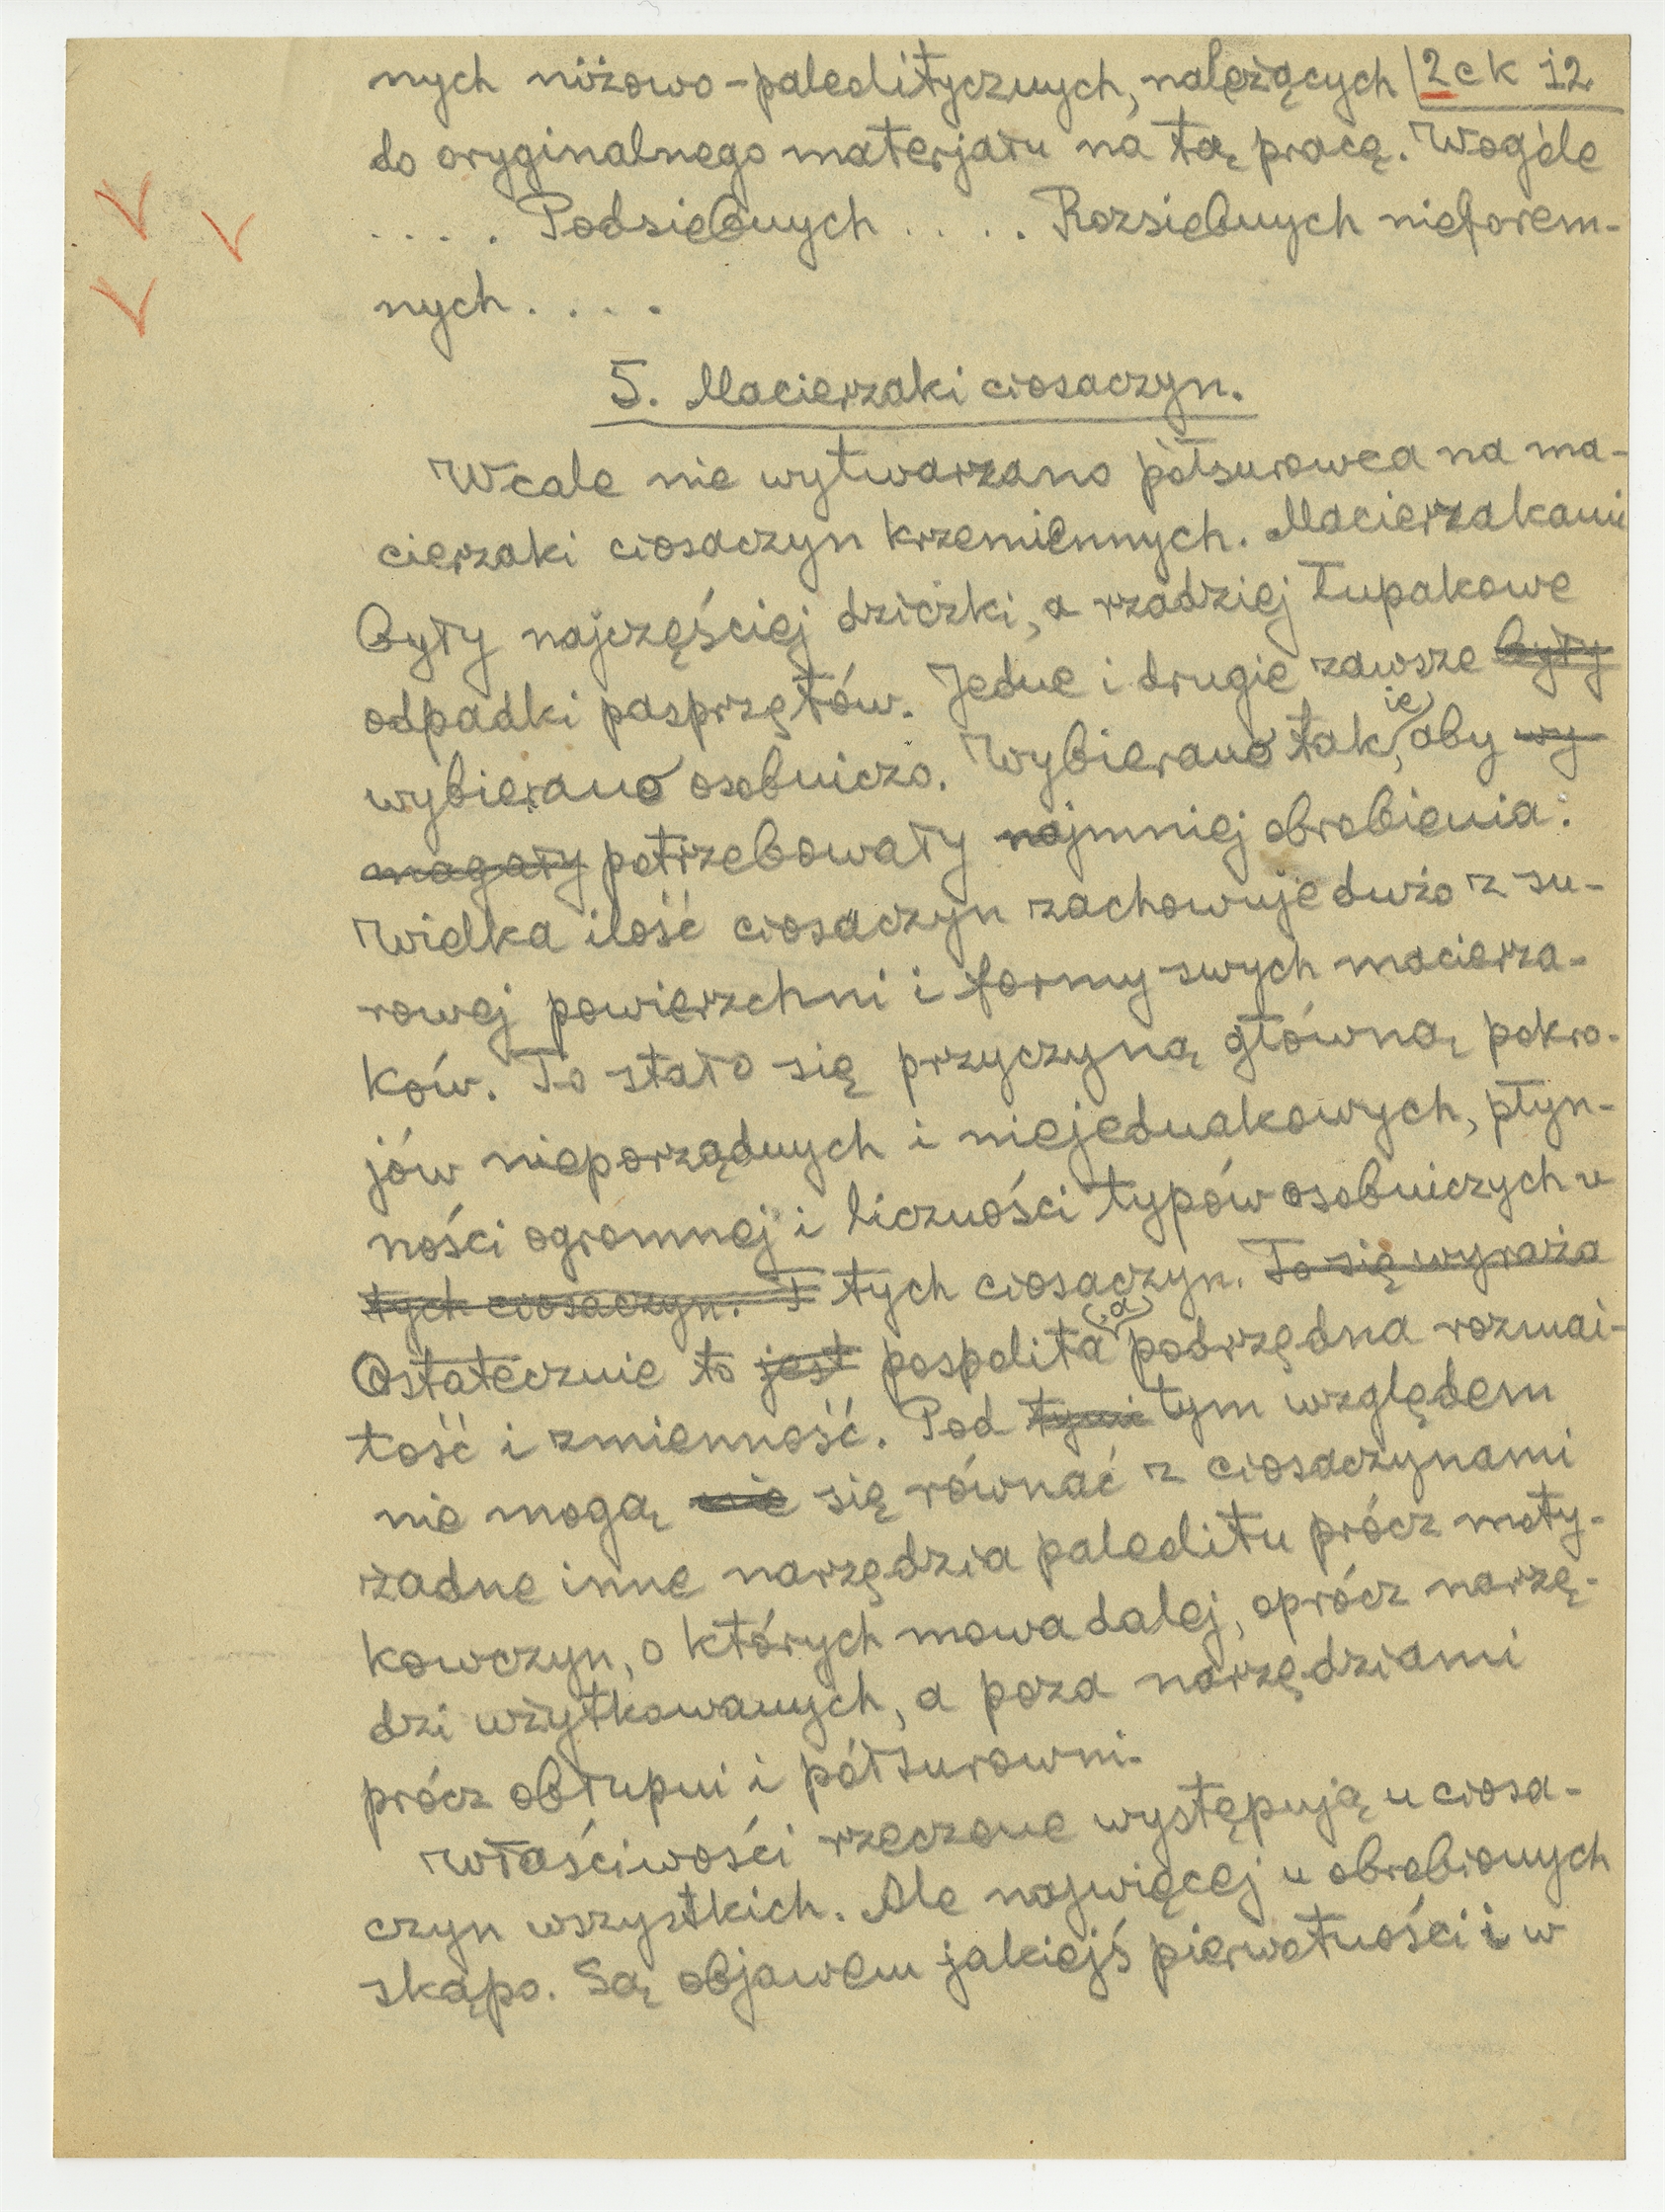 nych niżowo-paleolitycznych, należących 2 c k 12
do oryginalnego materjału na tą pracę. Wogóle
. . . . Podsiebnych . . . . Rozsiebnych nieforem-
nych . . . .
5. Macierzaki ciosaczyn.
Wcale nie wytwarzano półsurowca na ma-
cierzaki ciosaczyn krzemiennych. Macierzakami
były najczęściej dziczki, a rzadziej łupakowe
odpadki pasprzętów. Jedne i drugie zawsze były
wybierano osobniczo. Wybierano tak, ie aby wy
magały potrzebowały najmniej obrobienia.
Wielka ilość ciosaczyn zachowuje dużo z su-
rowej powierzchni i formy swych macierza-
ków. To stało się przyczyną główną pokro-
jów nieporządnych i niejednakowych, płyn-
ności ogromnej i liczności typów osobniczych u
tych ciosaczyn. T tych ciosaczyn. To się wyraża
Ostatecznie to jest pospolita , a podrzędna rozmai-
tość i zmienność. Pod tymi tym względem
nie mogą nie się równać z ciosaczynami
żadne inne narzędzia paleolitu prócz moty-
kowczyn, o których mowa dalej, oprócz narzę-
dzi użytkowanych, a poza narzędziami
prócz obłupni i półsurowni.
Właściwości rzeczone występują u ciosa-
czyn wszystkich. Ale najwięcej u obrobionych
skąpo. Są objawem jakiejś pierwotności i w